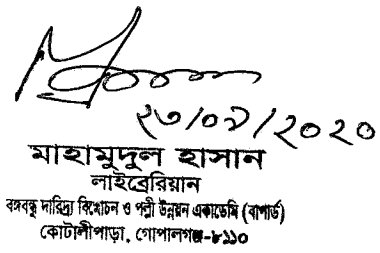 ২৩/০৯/২০২০
মাহামুদুল হাসান
লাইব্রেরিয়ান
বঙ্গবন্ধু দারিদ্র্য বিমোচন ও পল্লী উন্নয়ন একাডেমি (বাপার্ড)
কোটালীপাড়া, গোপালগঞ্জ-৮১১০